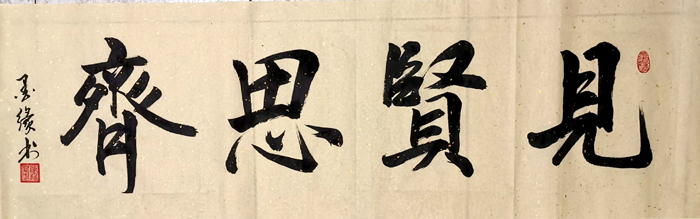 見賢思齊
墨緣书